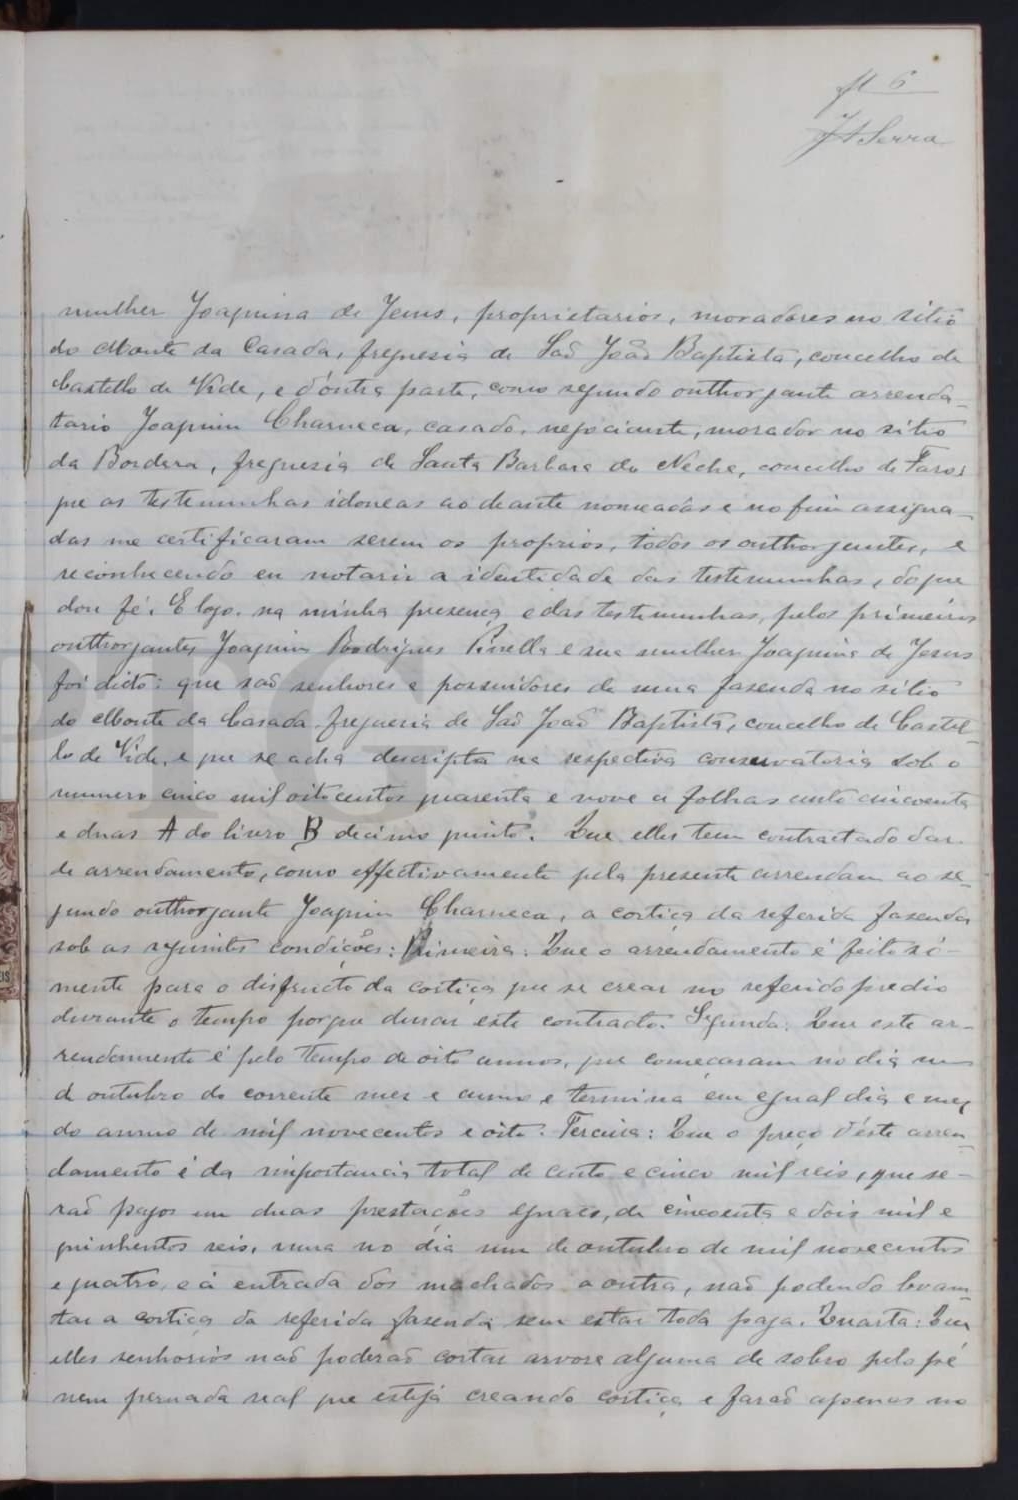 fl 6
JASerra
mulher Joaquina de Jesus, proprietarios, moradores no sitio
do Monte da Casada, freguesia de Saõ Joaõ Baptista, concelho de
Castello de Vide, e d'outra parte, como segundo outhorgante arrenda-
tario Joaquim Charneca, casado, negociante, morador no sitio
da Bordera, freguesia de Santa Barbara de Neche, concelho de Faro;
que as testemunhas idoneas ao deante nomeadas e no fim assigna-
das me certificaram serem os proprios, todos os outhorgantes, e
reconhecendo eu notario a identidade das testemunhas, do que
dou fé. E logo na minha presença e das testemunhas, pelos primeiros
outhorgantes Joaquim Rodrigues Pinella e sua mulher Joaquina de Jesus
foi dicto: que saõ senhores e possuidores de uma fazenda no sitio
do Monte da Casada freguesia de Saõ Joaõ Baptista, concelho de Castel-
lo de Vide, e que se acha descripta na respectiva conservatoria sob o
numero cinco mil oitocentos quarenta e nove a folhas cento cincoenta
e duas A do livro B decimo quinto. Que elles tem contractado dar
de arrendamento, como effectivamente pela presente arrendam ao se-
gundo outhorgante Joaquim Charneca, a cortiça da referida fazenda
sob as seguintes condições: Primeira: Que o arrendamento é feito só-
mente para o disfructo da cortiça que se crear no referido predio
durante o tempo porque durar este contracto. Segunda: Que este ar-
rendamento é pelo tempo de oito annos, que começaram no dia um
de outubro do corrente mez e anno e termina em egual dia e mez
do anno de mil novecentos e oito. Terceira: Que o preço d'este arren-
damento é da importancia total de cento e cinco mil reis, que se-
raõ pagos em duas prestações eguaes, de cincoenta e dois mil e
quinhentos reis, uma no dia um de outubro de mil novecentos
e quatro, e á entrada dos machados a outra, naõ podendo levan-
tar a cortiça da referida fazenda sem estar toda paga. Quarta: Que
elles senhorios naõ poderaõ cortar arvore alguma de sobro pelo pé
nem pernada real que esteja creando cortiça e faraõ apenas no